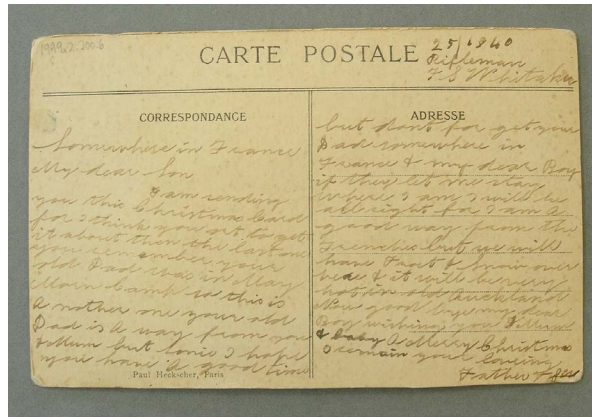 1999.2.200.6
CARTE POSTALE
25/1940
Rifleman
F S Whitaker
CORRESPONDANCE
Somewhere in France
My dear Son
I am sending
you this Christmas Card
for I think you ort to get
it about then the last one
you remember your
old Dad was in May
Morn Camp so this is
A nother one your old
Dad is A way from you
but Sonie I hope
you have A good time
Paul Heckscher, Paris
ADRESSE
but dont for get your
Dad somewhere in
France & my dear Boy
if they let me stay
where I am I will be
all right for I am A
good way from the
trenches but we will
have Frost & Snow over
here & it will be very
hot in old Auckland
good bye my dear
Boy wishing you
& baby A Merry Christmas
I remain your loving
Father